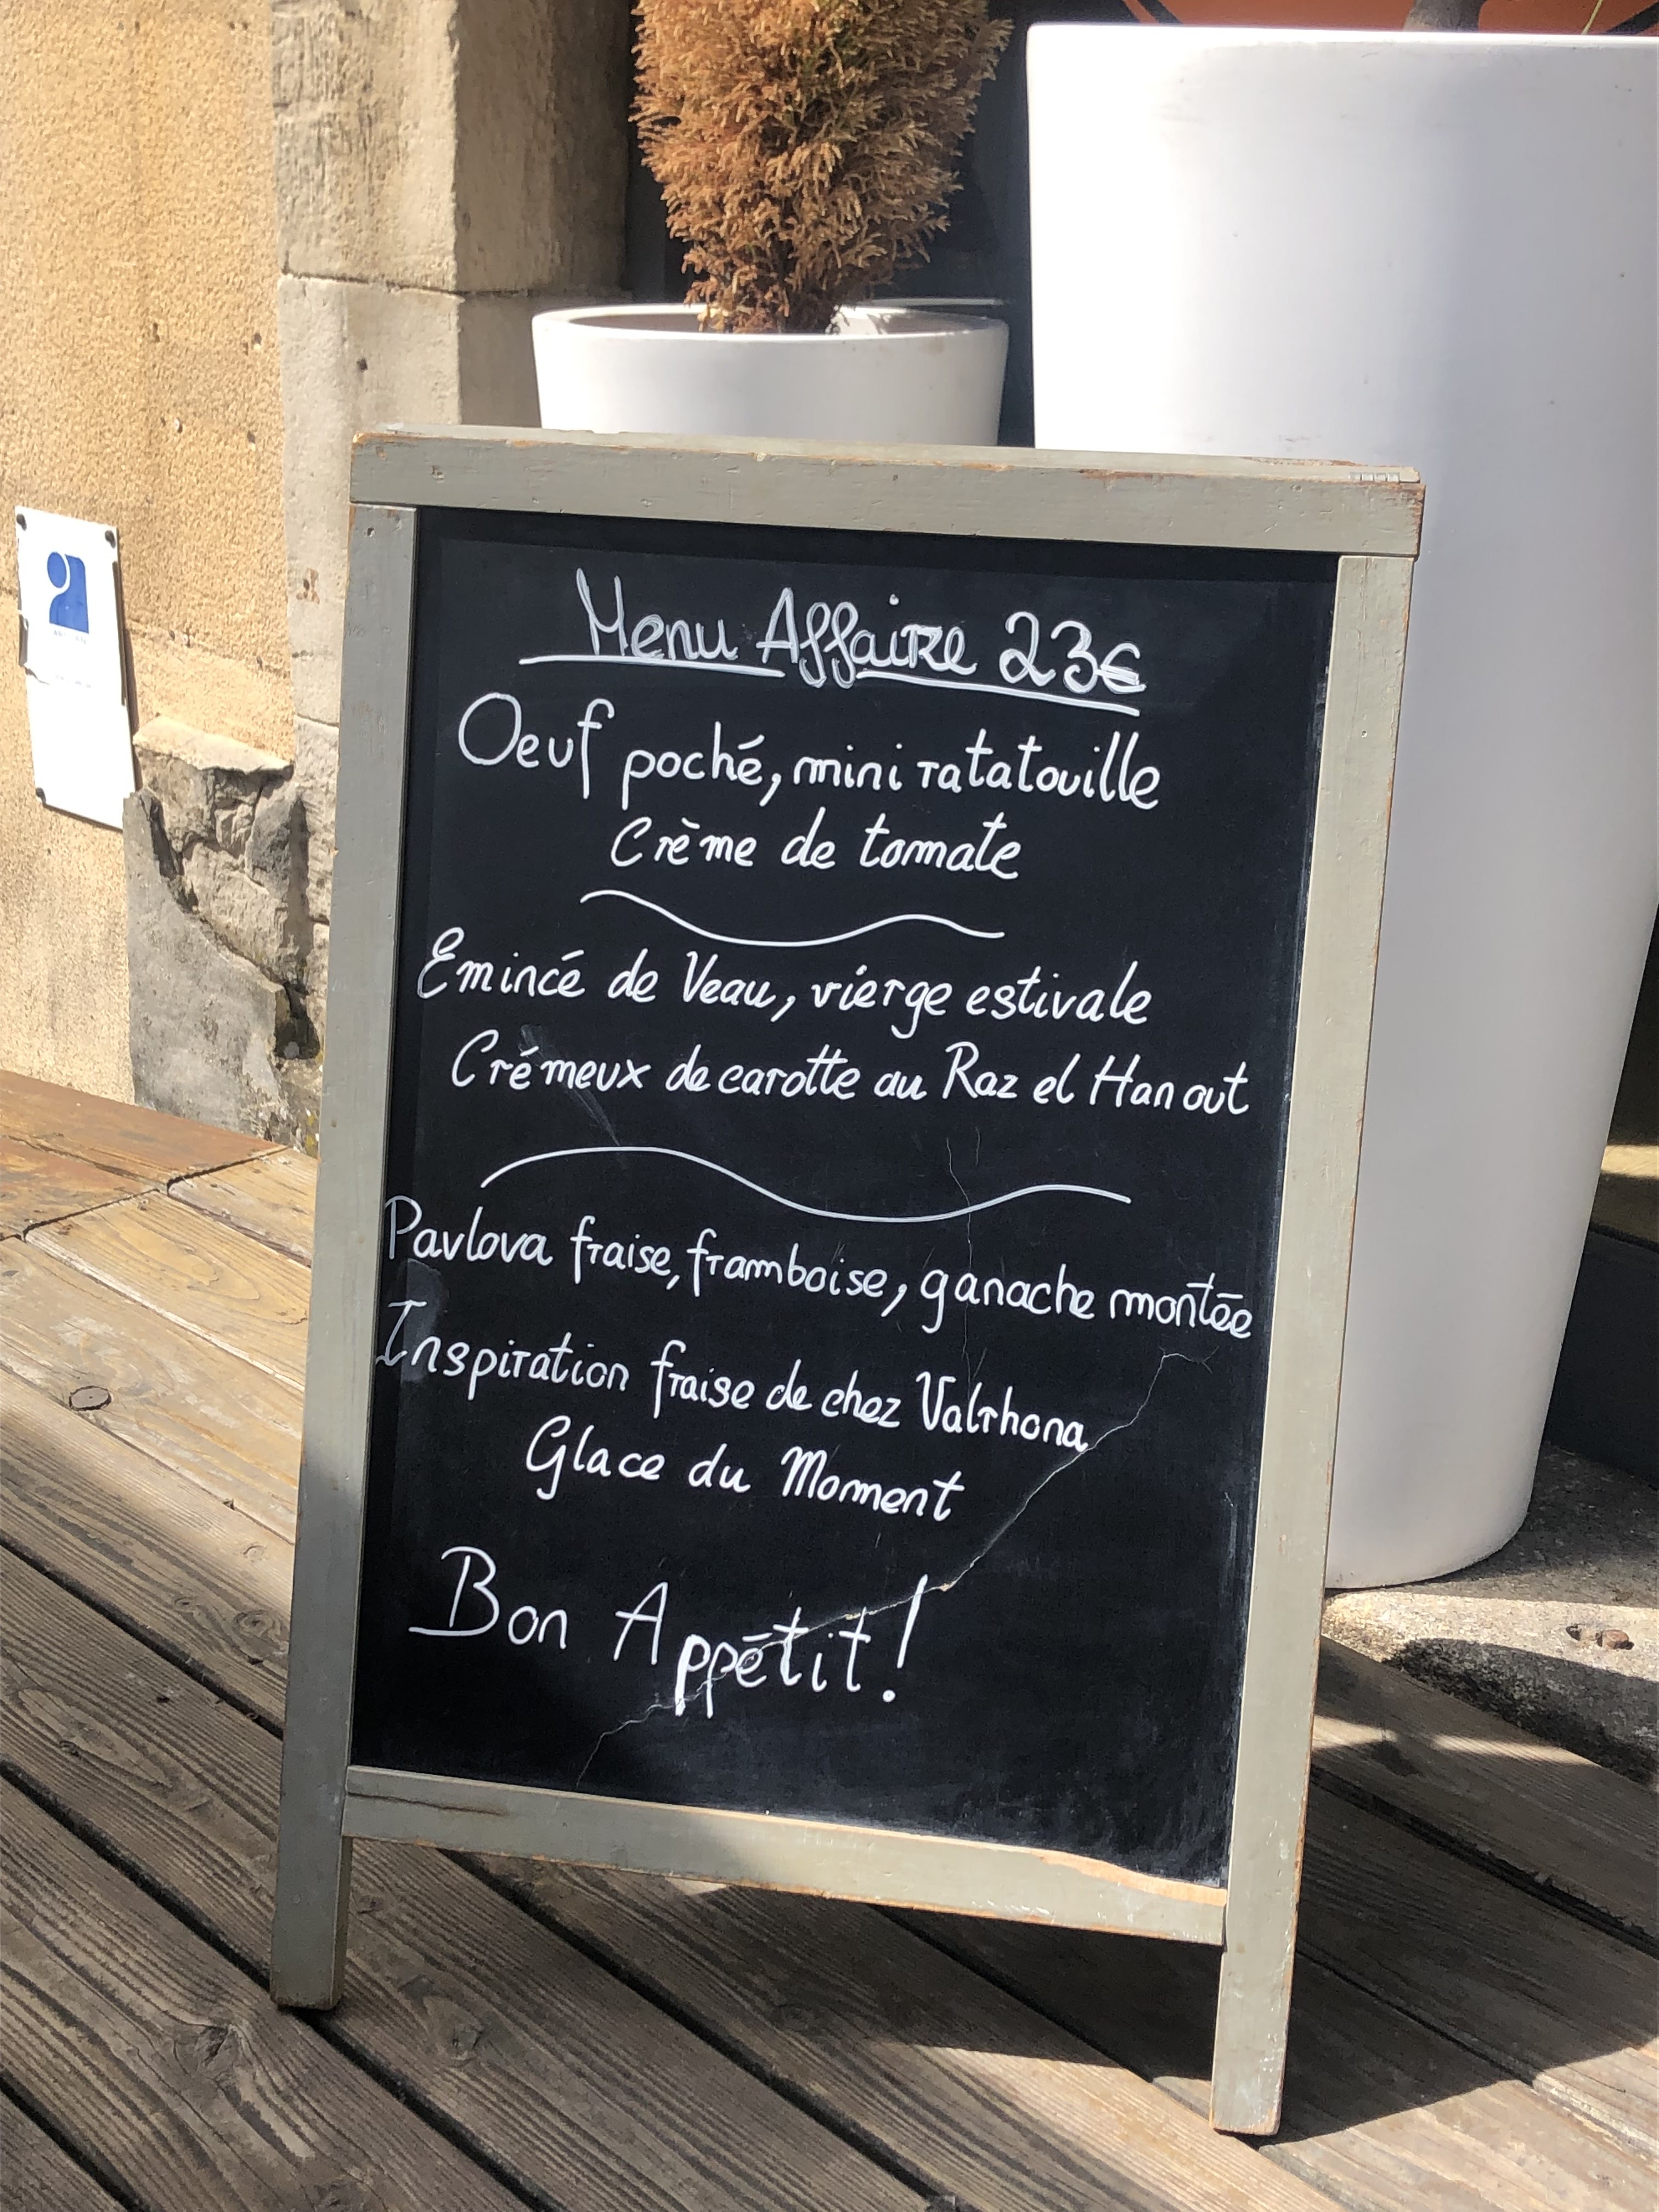 Menu Affaire 23€
Oeuf poché, mini ratatouille
Crème de tomate
Emincé de Veau, vierge estivale
Crémeux de carotte au Raz el Hanout
Pavlova fraise, framboise, ganache montée
Inspiration fraise de chez Valrhona
Glace du Moment
Bon Appétit!